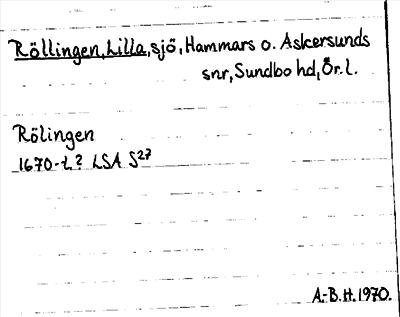 Röllingen, Lilla, sjö, Hammars o. Askersunds
snr, Sundbo hd, Ör. l.
Rölingen
1670-t.? LSA S27
A.-B.H. 1970.